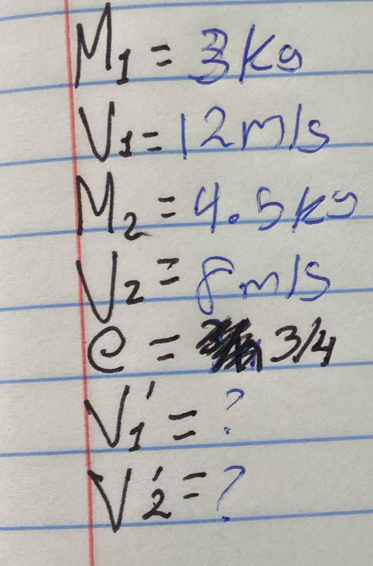 M₁ = 3kg
V₁ = 12m/s
M₂ = 4.5kg
V₂ = 8m/s
e = 3/4
V₁' = ?
V₂' = ?